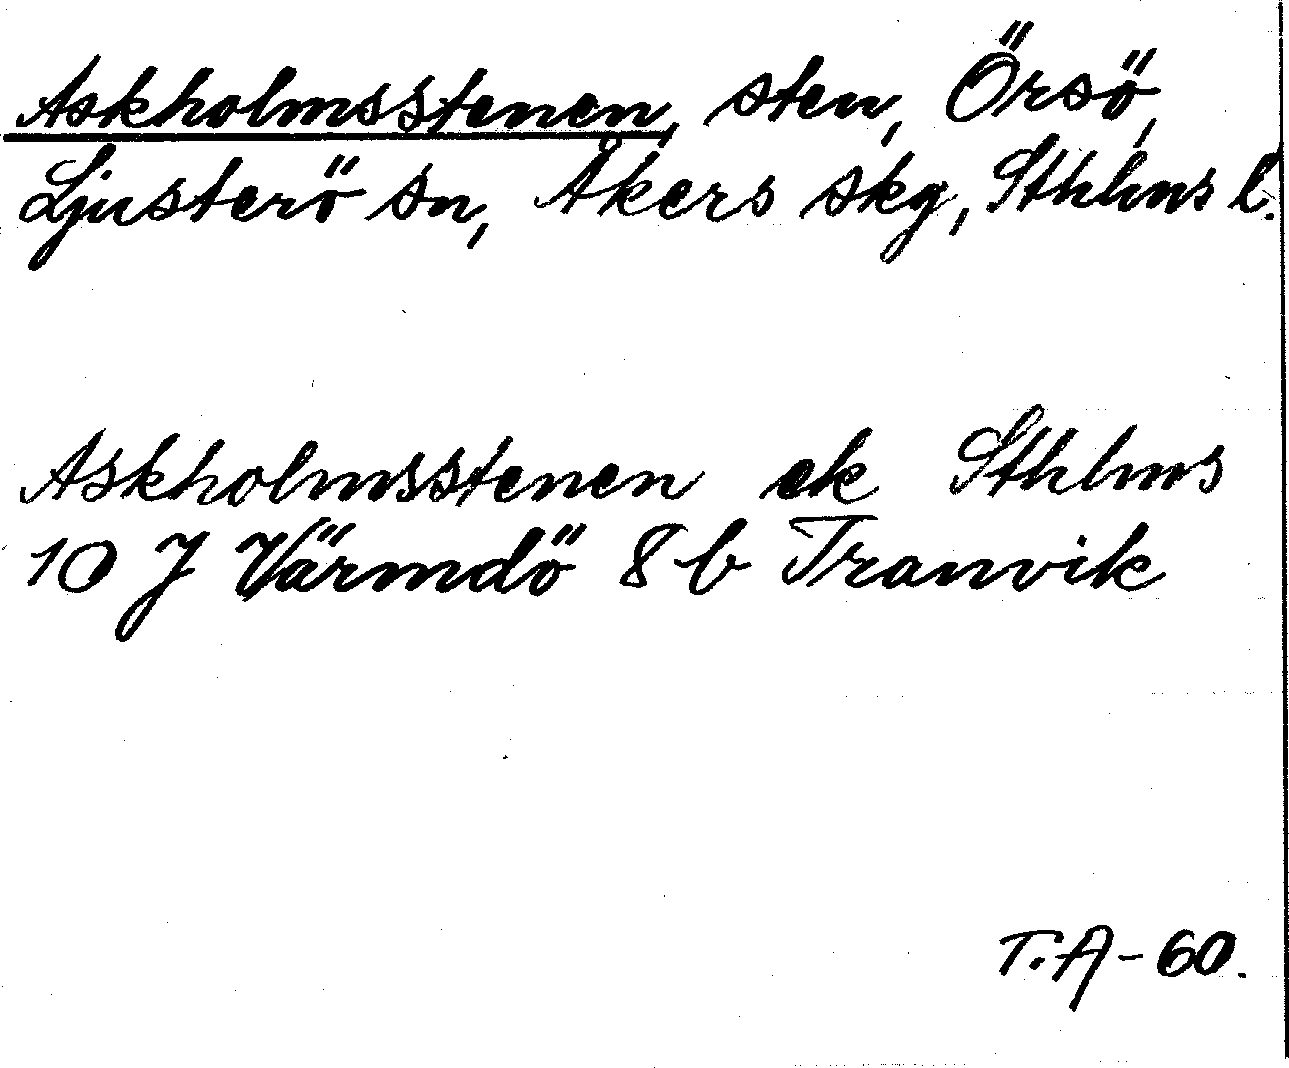 Askholmsstenen, sten, Örsö,
Ljusterö sn, Åkers skg, Sthlms l.
Askholmsstenen ek Sthlms
10 J Värmdö 8 b Tranvik
T.A-60.